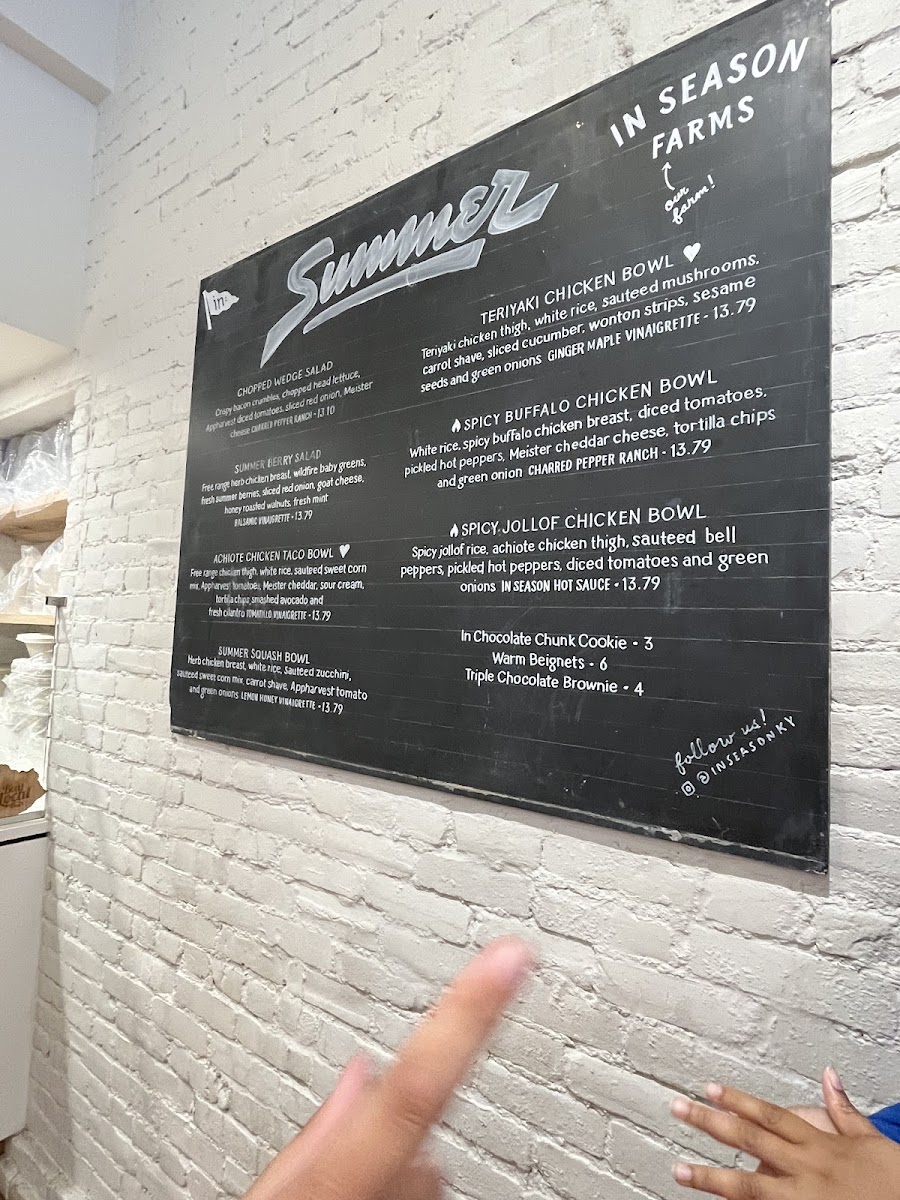 IN SEASON
FARMS
our
farm!
in
Summer
CHOPPED WEDGE SALAD
Crispy bacon crumbles, chopped head lettuce,
Appharvest diced tomatoes, sliced red onion, Meister
cheese CHARRED PEPPER RANCH - 13.10
SUMMER BERRY SALAD
Free range herb chicken breast, wildfire baby greens,
fresh summer berries, sliced red onion, goat cheese,
honey roasted walnuts, fresh mint
BALSAMIC VINAIGRETTE - 13.79
ACHIOTE CHICKEN TACO BOWL
Free range chicken thigh, white rice, sauteed sweet corn
mix, Appharvest tomatoes, Meister cheddar, sour cream,
tortilla chips, smashed avocado and
fresh cilantro TOMATILLO VINAIGRETTE - 13.79
SUMMER SQUASH BOWL
Herb chicken breast, white rice, sauteed zucchini,
sauteed sweet corn mix, carrot shave, Appharvest tomato
and green onions LEMON HONEY VINAIGRETTE - 13.79
TERIYAKI CHICKEN BOWL
Teriyaki chicken thigh, white rice, sauteed mushrooms,
carrot shave, sliced cucumber, wonton strips, sesame
seeds and green onions GINGER MAPLE VINAIGRETTE - 13.79
SPICY BUFFALO CHICKEN BOWL
White rice, spicy buffalo chicken breast, diced tomatoes,
pickled hot peppers, Meister cheddar cheese, tortilla chips
and green onion CHARRED PEPPER RANCH - 13.79
SPICY JOLLOF CHICKEN BOWL
Spicy jollof rice, achiote chicken thigh, sauteed bell
peppers, pickled hot peppers, diced tomatoes and green
onions IN SEASON HOT SAUCE - 13.79
In Chocolate Chunk Cookie - 3
Warm Beignets - 6
Triple Chocolate Brownie - 4
follow us!
@INSEASONKY